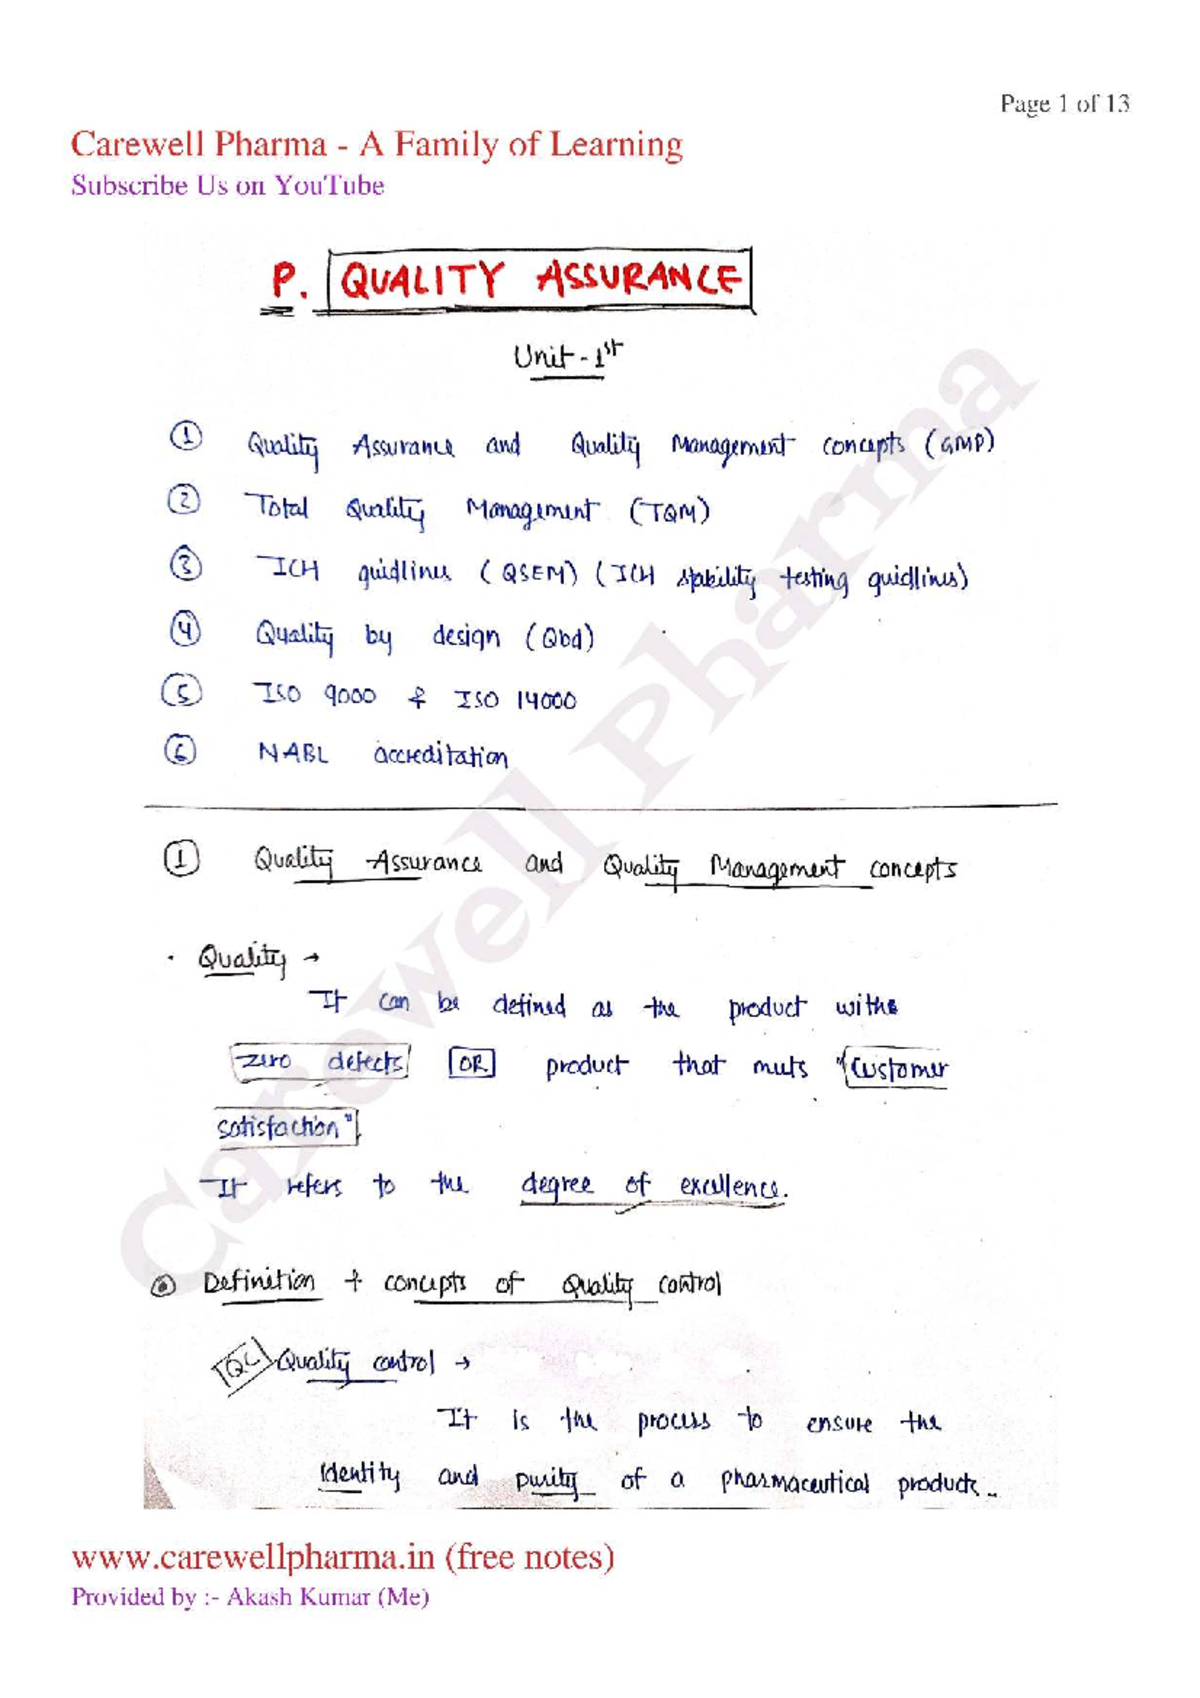 Page 1 of 13
Carewell Pharma - A Family of Learning
Subscribe Us on YouTube
P. QUALITY ASSURANCE
Unit - 1st
① Quality Assurance and Quality Management concepts (GMP)
② Total Quality Management (TQM)
③ ICH guidlines (QSEM) (ICH stability testing guidlines)
④ Quality by design (Qbd)
⑤ ISO 9000 & ISO 14000
⑥ NABL accreditation
① Quality Assurance and Quality Management concepts
• Quality →
It can be defined as the product with
zero defects OR product that muts "Customer
satisfaction".
It refers to the degree of excellence.
Definition + concepts of Quality control
QC Quality control →
It is the process to ensure the
identity and purity of a pharmaceutical product..
Carewell Pharma
www.carewellpharma.in (free notes)
Provided by :- Akash Kumar (Me)